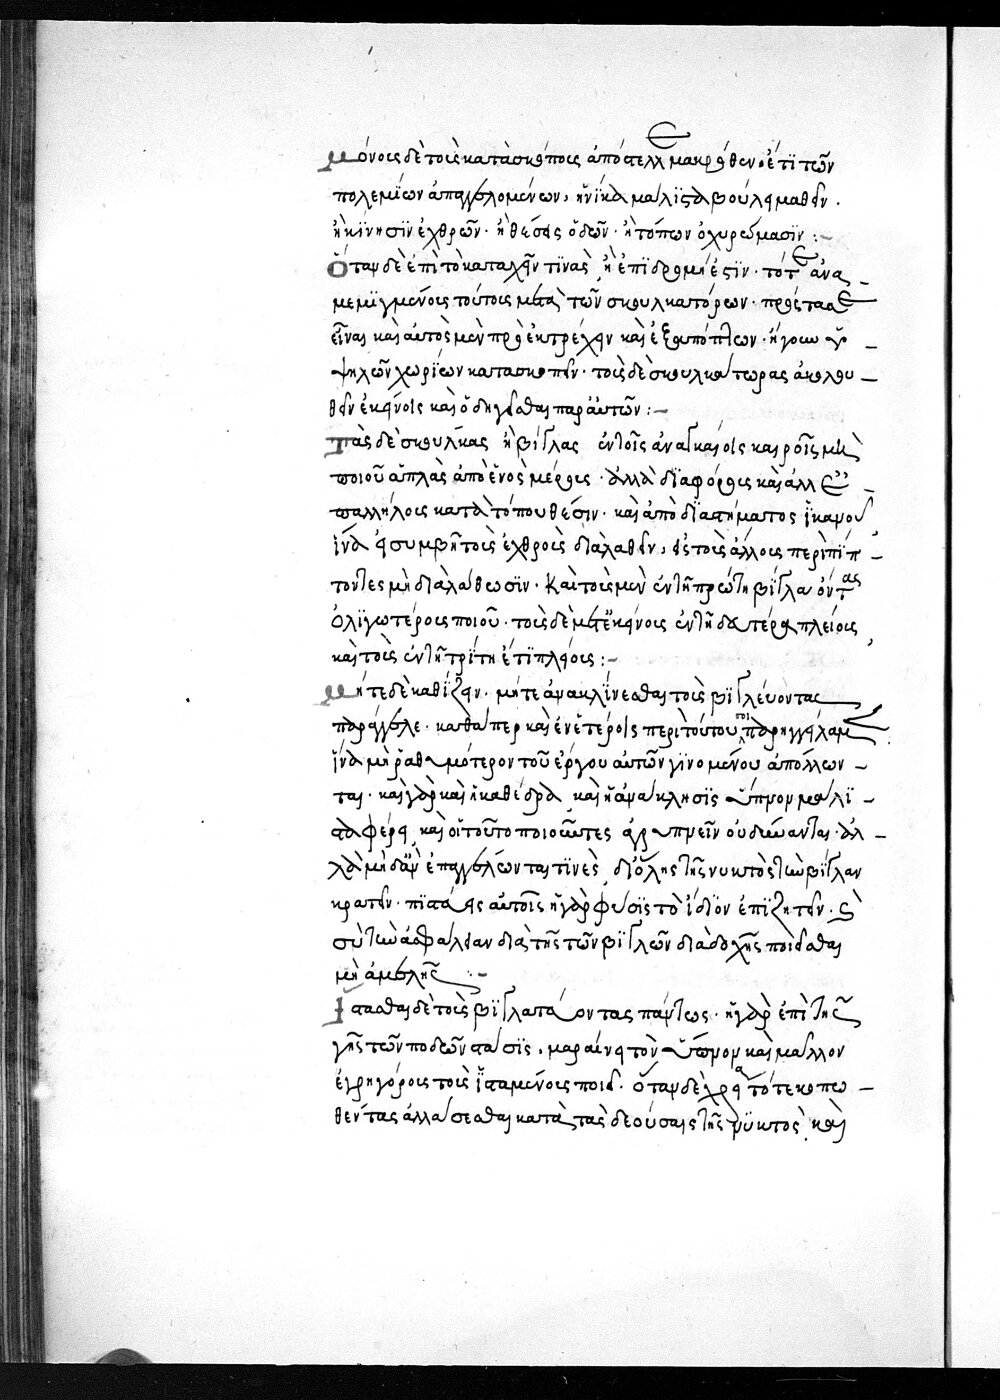 Μόνοις δὲ τοῖς κατασκόποις ἀποστελλε μακρόθεν ἔτι τῶν
πολεμίων ἀπαγγελομένων, ἡνίκα μάλιστα βούλει μαθεῖν.
ἢ κίνησιν ἐχθρῶν· ἢ θέσεις ὁδῶν· ἢ τόπων ὀχυρώμασιν :-
Ὅταν δὲ ἐπὶ τὸ κατασχεῖν τινὰς ἢ ἐπιδρομή ἐστιν· τότε ἀνα
μεμιγμένοις τούτοις μετὰ τῶν σκουλκατόρων· πρόστασσε
εἶναι καὶ αὐτοὺς μὲν προεκτρέχειν καὶ ἐξ ἀπόπτων· ἤγουν ὑ
ψηλῶν χωρίων κατασκοπεῖν· τοῖς δὲ σκουλκάτωρας ἀκολου
θεῖν ἐκείνοις καὶ ὁδηγεῖσθαι παρ' αὐτῶν :-
Τὰς δὲ σκούλκας ἢ βίγλας ἐν τοῖς ἀναγκαίοις καιροῖς μὴ
ποιοῦ ἁπλὰς ἀπὸ ἑνὸς μέρους· ἀλλὰ διαφόρους καὶ ἀλλ
ἐπαλλήλοις κατὰ τόπου θέσιν· καὶ ἀπὸ διαστήματος ἱκανοῦ
ἵνα εἰ συμβῆ τοῖς ἐχθροῖς διαλαθεῖν, εἰς τοῖς ἄλλοις περιπίπ
τοντες μὴ διαλάθωσιν· Καὶ τοῖς μὲν ἐν τῆ πρώτη βίγλα ὄντας
ὀλιγωτέροις ποιοῦ· τοῖς δὲ μετ' ἐκείνοις ἐν τῆ δευτέρα πλείοις
καὶ τοῖς ἐν τῆ τρίτη ἔτι πλείοις :-
Μήτε δὲ καθίζειν· μήτε ἀνακλίνεσθαι τοῖς βιγλεύοντας
παράγγελε· καθάπερ καὶ ἐν ἑτέροις περὶ τούτου σοι παρηγγείλαμεν
ἵνα μὴ ῥαθυμότερον τοῦ ἔργου αὐτῶν γινομένου ἀπόλλων
ται· καὶ γὰρ καὶ ἡ καθέδρα καὶ ἡ ἀνάκλησις ὕπνον μάλι
στα φέρει καὶ οἱ τοῦτο ποιοῦντες ἀγρυπνεῖν οὐ δύνανται· ἀλ
λὰ μηδ' ἂν ἐπαγγέλωνται τινὲς δι' ὅλης τῆς νυκτὸς τὴν βίγλαν
κρατεῖν· πίστευε αὐτοῖς ἡ γὰρ φύσις τὸ ἴδιον ἐπιζητεῖν· καὶ
σὺ τὴν ἀσφάλειαν διὰ τῆς τῶν βιγλῶν διαδοχῆς ποιεῖσθαι
μὴ ἀμελῆς :-
Ἵστασθαι δὲ τοῖς βίγλας πάντως· ἡ γὰρ ἐπὶ τῆς
γῆς τῶν ποδῶν στάσις, μαραίνει τὸν ὕπνον καὶ μᾶλλον
ἐγρηγόροις τοῖς ἱσταμένοις ποιεῖ· ὅταν δὲ χρεία τότε κοπω
θέντας ἀλλάσεσθαι κατὰ τὰς δεούσας τῆς νυκτὸς καὶ